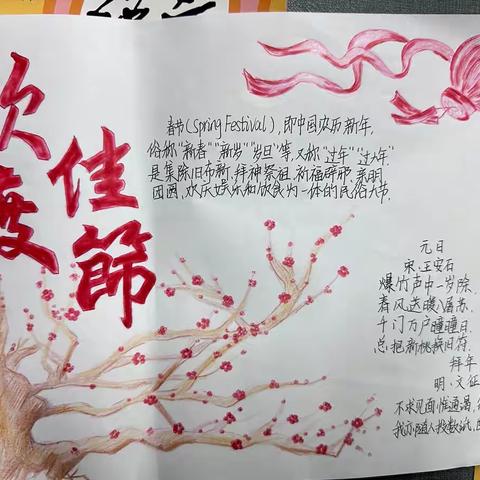 欢度
佳節
春节(Spring Festival),即中国农历新年,
俗称"新春""新岁""岁旦"等,又称"过年""过大年"
是集除旧布新、拜神祭祖、祈福辟邪、亲朋
团圆、欢庆娱乐和饮食为一体的民俗大节.
元日
宋:王安石
爆竹声中一岁除,
春风送暖入屠苏.
千门万户曈曈日,
总把新桃换旧符.
拜年
明、文征
不求见面惟通谒,
我亦随人投数纸,